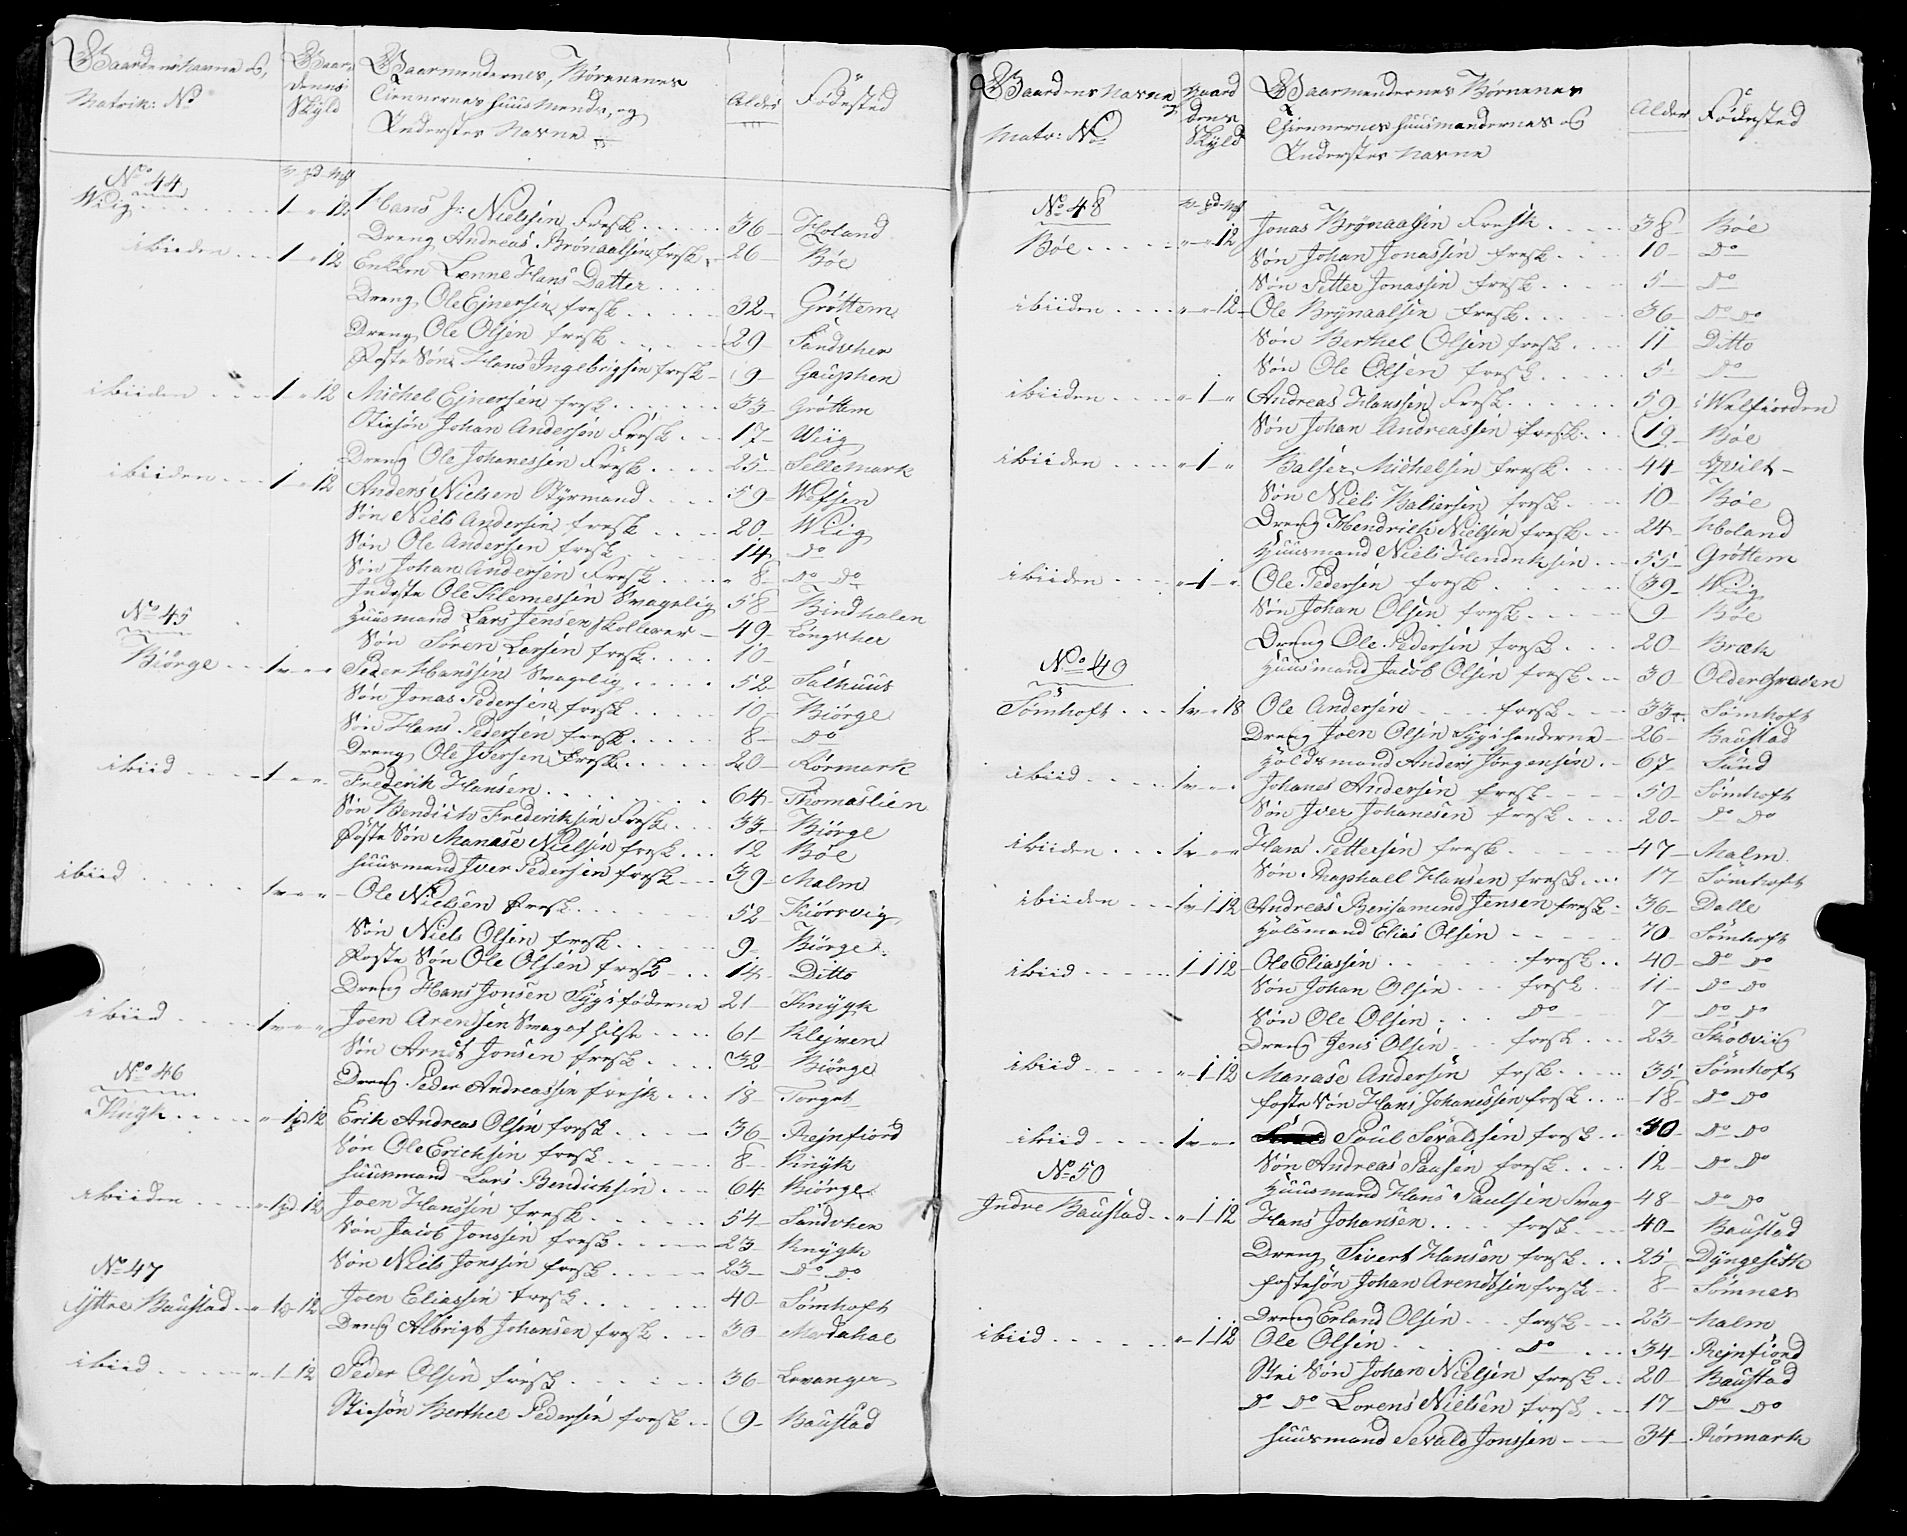 Gaardens Navne og
Matrik: No
Gaardens Skyld
Gaarmendernes, Børnenes
Tiennernes Huusmends, og
Indersters Navne
Alder
Fødested
No 44
Wiig 1 " 12 Hans Jr: Nielssen Fresk 36 Holand
Dreng Andreas Brønaalsen fresk 26 Bøe
ibiiden 1 " 12 Enken Lenne Hans Datter
Dreng Ole Ejnersen fresk 32 Grøttem
Dreng Ole Olsen fresk 29 Sandvher
Foste Søn Hans Ingebrigsen fresk 9 Gauphen
ibiiden 1 " 12 Michel Ejnersen fresk 33 Grøttem
Stisøn Johan Andersen Fresk 17 Wiig
Dreng Ole Johanessen Fresk 25 Tellemark
ibiiden 1 " 12 Anders Nielsen Styrmand 59 Wefsen
Søn Niels Andersen fresk 20 Wiig
Søn Ole Andersen fresk 14 Do
Søn Johan Andersen Fresk 8 Do Do
Inderste Ole Klemessen Svagelig 58 Bindhalen
Huusmand Lars Jensen skollerer 49 Langvher
Søn Søren Larsen fresk 10
No 45
Biörge 1 v " " Peder Hanssen Svagelig 52 Salhuus
Søn Jonas Pedersen fresk 10 Biörge
Søn Hans Pedersen fresk 8 Do
Dreng Ole Iversen Fresk 20 Rörmark
ibiid 1 " " Frederik Hansen 64 Thomaslien
Søn Bendich Frederiksen Fresk 33 Biörge
Foste Søn Manase Nielsen fresk 12 Bøe
Huusmand Iver Pedersen fresk 39 Malm
ibiid 1 v " " Ole Nielsen Fresk 52 Kiörsvig
Søn Niels Olsen fresk 9 Biörge
Foste Søn Ole Olsen fresk 14 Ditto
Dreng Hans Jonsen Syg i føderne 21 Knygh
ibiid 1 v " " Joen Arentsen Svag af hilse 61 Klejven
Søn Arndt Jonsen fresk 32 Biörge
Dreng Peder Andreassen fresk 18 Torget
No 46
Knigh " 1 pd 12 Erik Andreas Olsen fresk 36 Rejnfiord
Søn Ole Erichsen fresk 8 Knygh
Huusmand Lars Bendichsen 64 Biörge
ibiiden " 1 pd 12 Joen Hanssen fresk 54 Sandvher
Søn Jacob Jonssen fresk 23 Knygh
Søn Niels Jonssen fresk 23 Do Do
No 47
Yttre Baustad " 1 " 12 Joen Eliassen fresk 40 Sømhoft
Dreng Albrigt Johansen fresk 30 Mardahal
ibiid " 1 12 Peder Olsen fresk 36 Levanger
Stiesøn Berthel Pedersen fresk 9 Baustad
Gaardens Navne og
Matr: No
Gaardens Skyld
Gaarmendernes Børnenes
Tiennernes Huusmendernes og
Indersters Navne
Alder
Fødested
No 48
Bøe " " 12 Jonas Brynaalsen Fresk 38 Bøe
Søn Johan Jonassen fresk 10 Do
Søn Petter Jonassen fresk 5 Do
ibiiden " " 12 Ole Brynaalsen fresk 36 Do Do
Søn Berthel Olsen fresk 11 Ditto
Søn Ole Olsen fresk 5 Do
ibiiden " 1 " Andreas Hanssen Fresk 59 i Welfiorden
Søn Johan Andreassen fresk 19 Bøe
ibiiden " 1 " Balser Michelsen fresk 44
Søn Niels Baltersen fresk 10 Bøe
Dreng Hendrich Nielsen fresk 24 Holand
Huusmand Niels Hendriksen 55 Grøttem
ibiiden " 1 " Ole Pedersen fresk 39 Wiig
Søn Johan Olsen fresk 9 Bøe
Dreng Ole Pedersen fresk 20 Bræk
Huusmand Jacob Olsen fresk 30 Oldergraven
No 49
Sømhoft 1 v " 18 Ole Andersen fresk 33 Sømhoft
Dreng Joen Olsen Syg i henderne 26 Baustad
Holdsmand Anders Jørgensen 67 Sund
ibiid 1 v " Johanes Andersen fresk 50 Sømhoft
Søn Iver Johanesen fresk 20 Do Do
ibiiden 1 v " " Hans Pettersen fresk 47 Malm
Søn Raphaell Hansen fresk 17 Sømhoft
ibiiden 1 v 1 12 Andreas Benjamend Jensen fresk 36 Dalle
Holsmand Elias Olsen 70 Sømhoft
ibiid 1 1 12 Ole Eliassen fresk 40 Do Do
Søn Johan Olsen fresk 11 Do Do
Søn Ole Olsen Do 7 Do Do
Dreng Jens Olsen fresk 23 Skobviig
ibiid " 1 12 Manase Andersen fresk 35 Sømhoft
foste Søn Hans Johanessen fresk 18 Do Do
ibiid 1 v " " Poul Sevaldsen fresk 40 Do Do
Søn Andreas Paulsen fresk 12 Do Do
Huusmand Hans Paulsen Svag 48 Do Do
No 50
Indre Baustad " 1 12 Hans Johansen fresk 40 Baustad
Dreng Sivert Hansen fresk 25 Dyngeseth
fostesøn Johan Arendssen fresk 8 Sømnes
Dreng Erland Olsen fresk 23 Malm
ibiid " 1 12 Ole Olsen Do 34 Rejnfiord
Sti Søn Johan Nielsen fresk 20 Baustad
Do Do Lorens Nielsen fresk 17 Do Do
Huusmand Sevald Jonssen 34 Rörmark